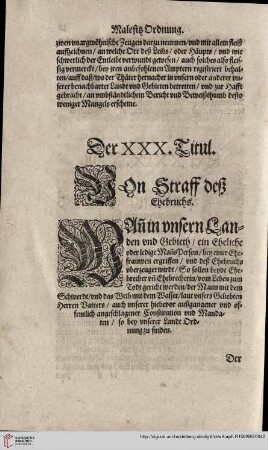 Malefitz Ordnung.
zwen vnargwöhnische Zeugen darzu nemmen/vnd mit allem fleiß
auffzeichnen/ an welche Ort deß Leibs/ oder Häupts/ vnd wie
schwerlich der Entleibt verwundt gewesen/ auch solches also fleis-
sig vermerckt/ bey jren anbefohlenen Amptern registriert behal-
ten/auff daß/ wo der Thäter hernacher in vnsern oder anderer vn-
serer benachbarter Landt vnd Gebieten betretten/ vnd zur Hafft
gebracht/ an vmbständtlichem Bericht vnd Beweißthumb desto
weniger Mangels erscheine.
Der XXX. Titul.
Von Straff deß
Ehebruchs.
Wann in vnsern Lan-
den vnd Gebieth/ ein Eheliche
oder ledige Mañs Person/ bey einer Ehe-
frauwen ergriffen/ vnd deß Ehebruchs
vberzeuget wirdt/ So sollen beyde Ehe-
brecher vñ Ehebrecherin/ vom Leben zum
Todt gericht werden/ der Mann mit dem
Schwerdt/ vnd das Weib mit dem Wasser/ laut vnsers Geliebten
Herren Vatters/ auch vnserer hiebevor außgangener vnd of-
fentlich angeschlagener Constitution vnd Manda-
ten/ so bey vnserer Landt Ord-
nung zu finden.
Der